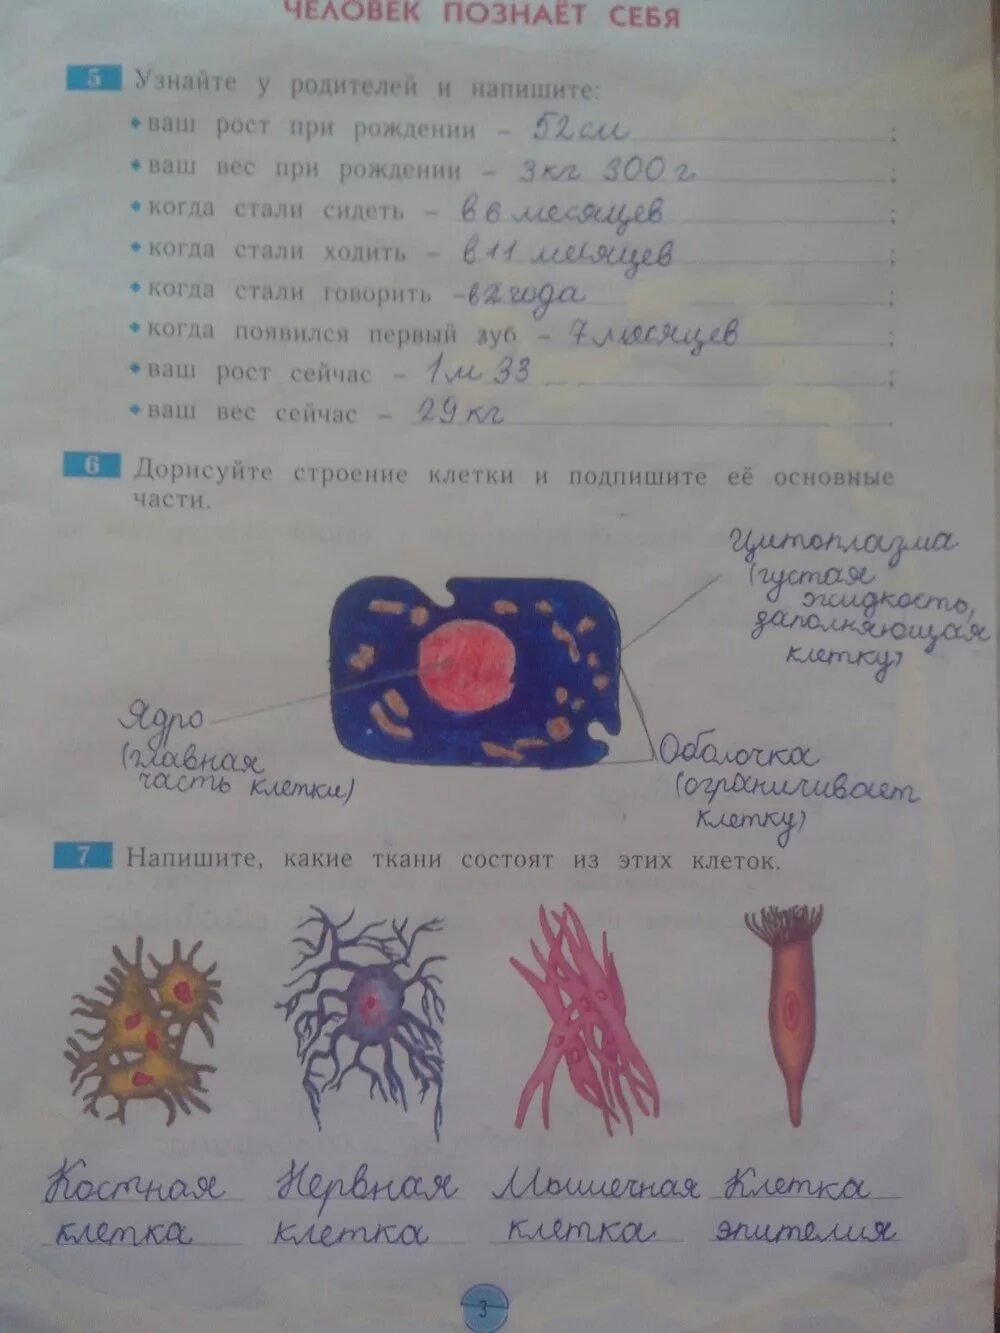 ЧЕЛОВЕК ПОЗНАЁТ СЕБЯ
5 Узнайте у родителей и напишите:
• ваш рост при рождении – 52 см ;
• ваш вес при рождении – 3 кг 300 г ;
• когда стали сидеть – в 6 месяцев ;
• когда стали ходить – в 11 месяцев ;
• когда стали говорить – в 2 года ;
• когда появился первый зуб – 7 месяцев ;
• ваш рост сейчас – 1 м 33 ;
• ваш вес сейчас – 29 кг .
6 Дорисуйте строение клетки и подпишите её основные
части.
Цитоплазма
(густая
жидкость,
заполняющая
клетку)
Ядро
(главная
часть клетки)
Оболочка
(ограничивает
клетку)
7 Напишите, какие ткани состоят из этих клеток.
Костная клетка
Нервная клетка
Мышечная клетка
Клетка эпителия
3